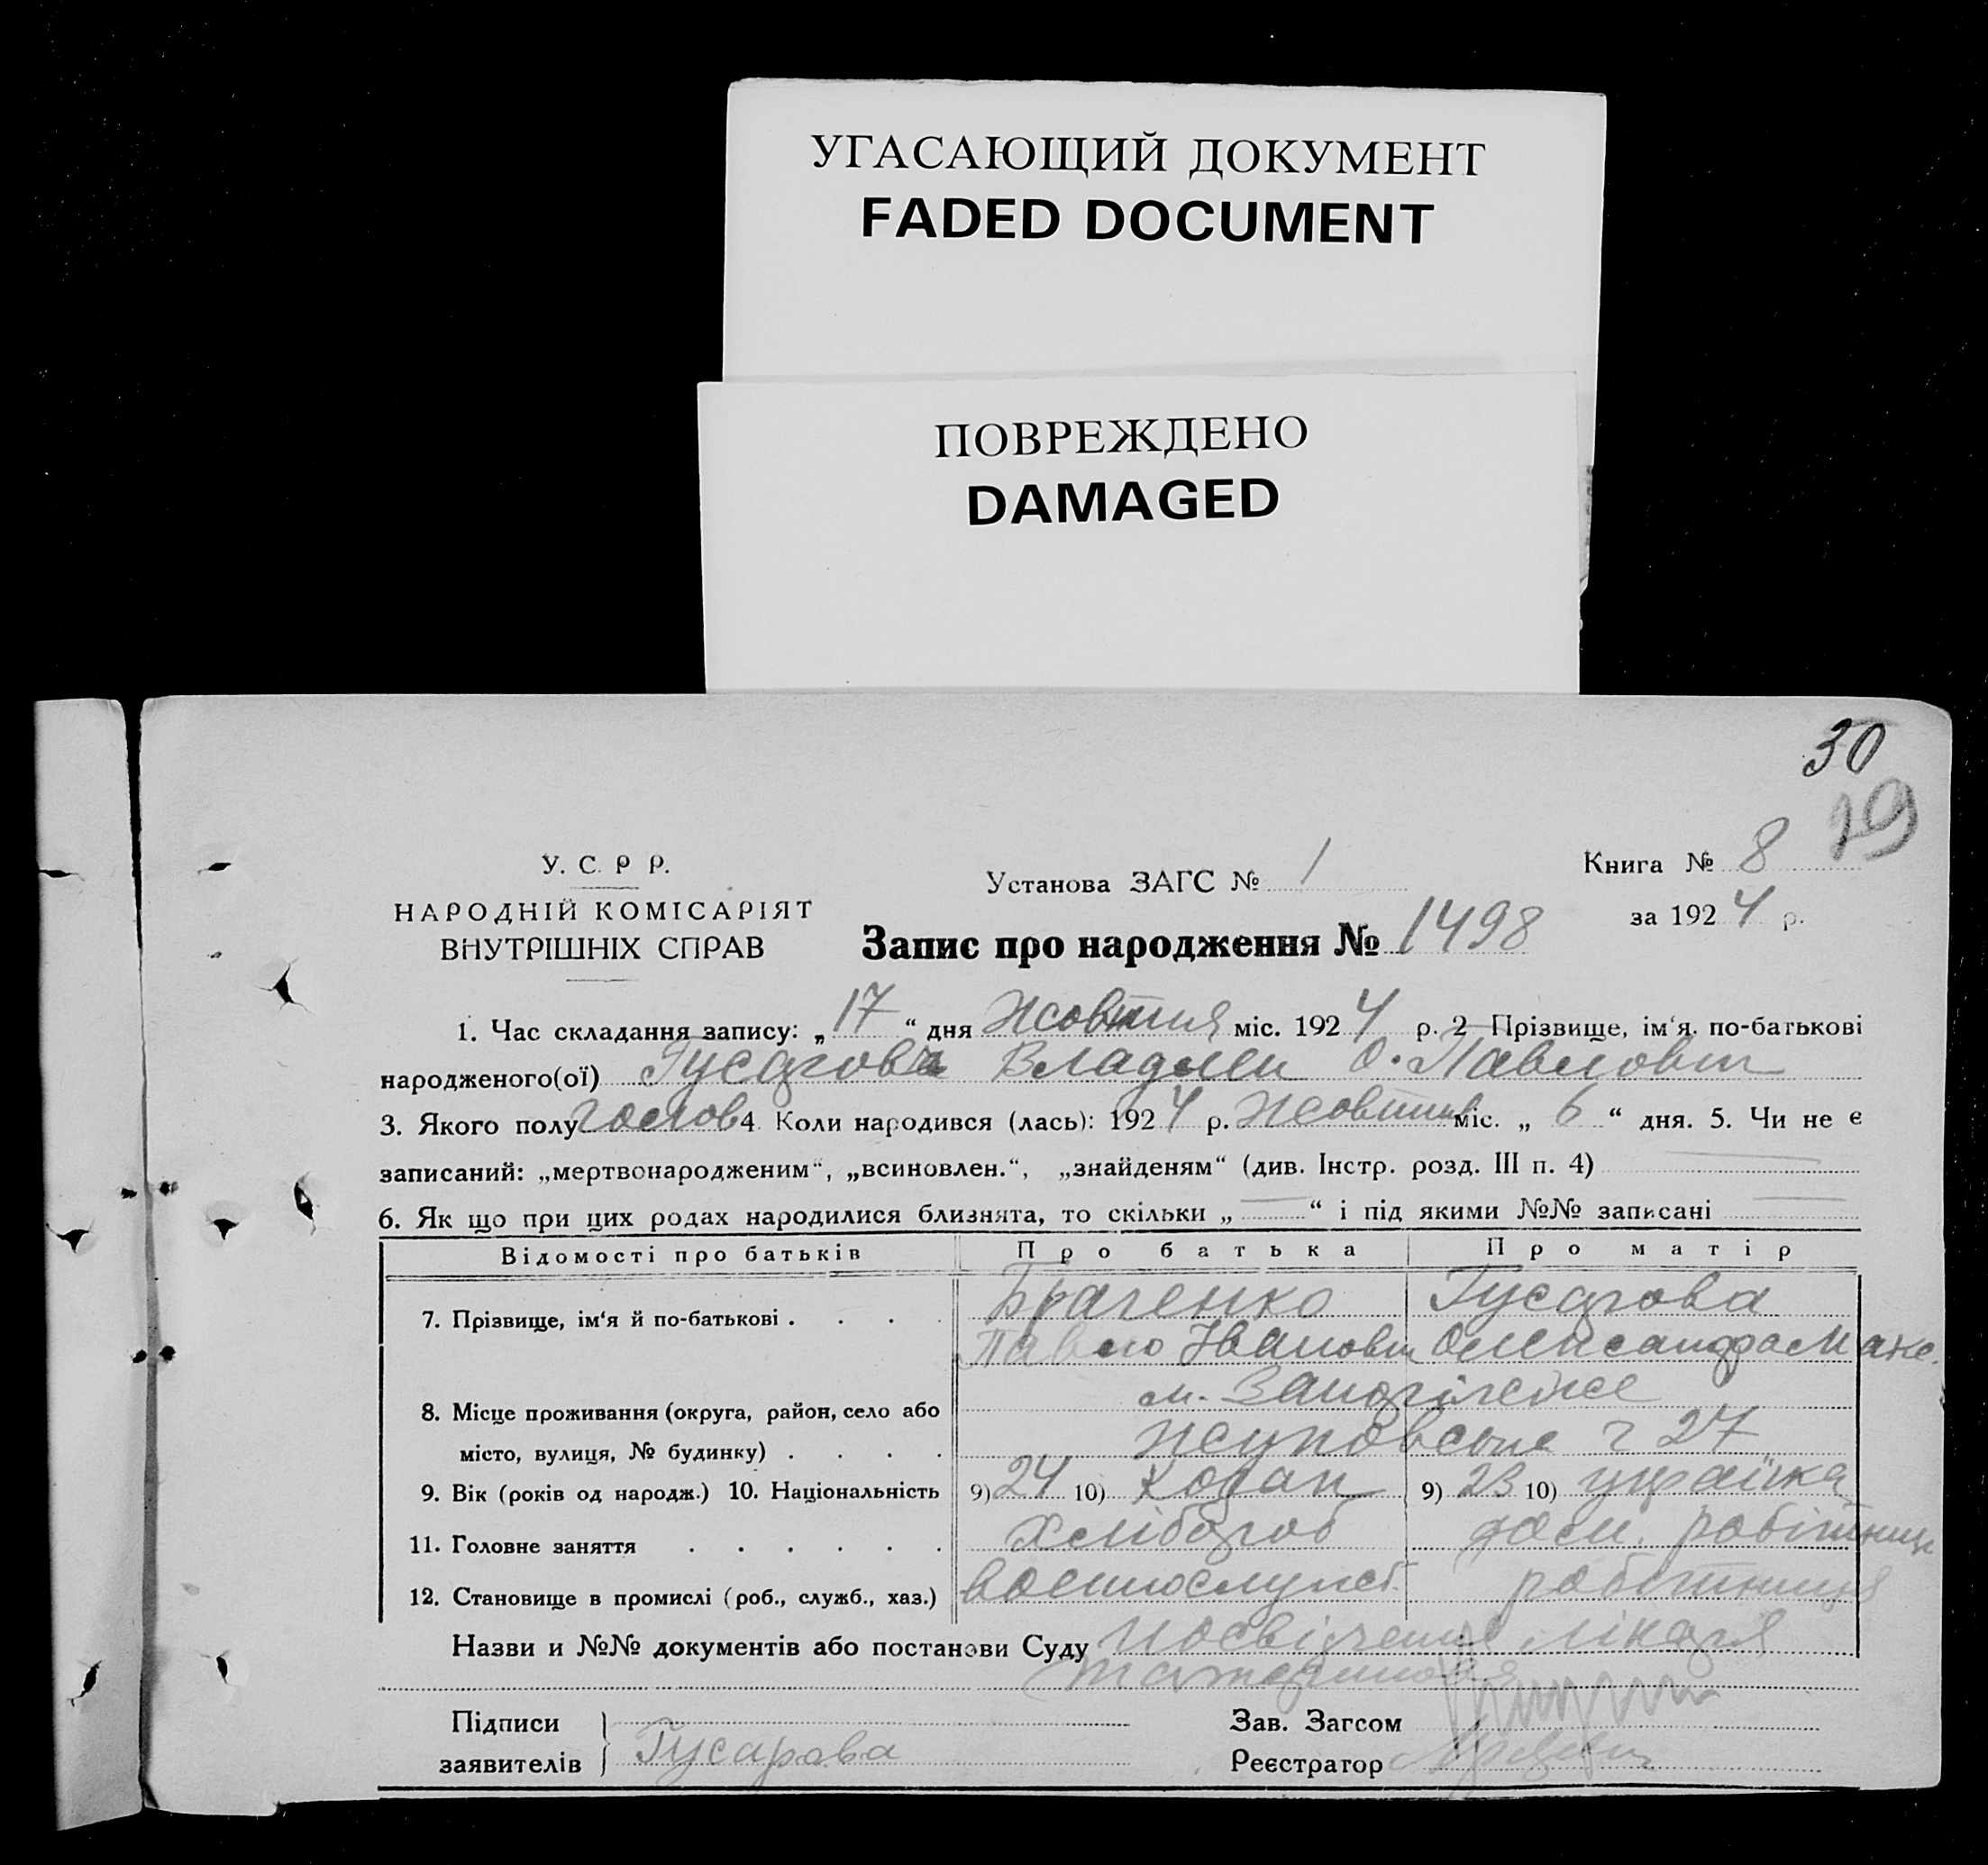 УГАСАЮЩИЙ ДОКУМЕНТ
FADED DOCUMENT
ПОВРЕЖДЕНО
DAMAGED
30
19
У. С. Р Р.
НАРОДНІЙ КОМІСАРІЯТ
ВНУТРІШНІХ СПРАВ
Установа ЗАГС № 1
Книга № 8
за 1924 р.
Запис про народження № 1498
1. Час складання запису: „17“ дня Жовтня міс. 1924 р. 2 Прізвище, ім‘я. по-батькові
народженого(ої) Гусарова Владлен О. Павлович
3. Якого полу 4. Коли народився (лась): 1924 р. Жовтня міс. „6“ дня. 5. Чи не є
записаний: „мертвонародженим“, „всиновлен.“, „знайденям“ (див. Інстр. розд. III п. 4)
6. Як що при цих родах народилися близнята, то скільки „ “ і під якими №№ записані
Відомості про батьків Про батька Про матір
7. Прізвище, ім‘я й по-батькові . . . . Гусарова
Павло Іванович Олександра Макс.
8. Місце проживання (округа, район, село або м. Запоріжже
місто, вулиця, № будинку) . . . . 27
9. Вік (років од народж.) 10. Національність 9) 24 10) 9) 23 10) українка
11. Головне заняття . . . . . . Хлібороб дом. робітниця
12. Становище в промислі (роб., служб., хаз.) військослужб. робітниця
Назви и №№ документів або постанови Суду Посвідчення лікаря
Підписи
заявителів Гусарова
Зав. Загсом
Реєстратор